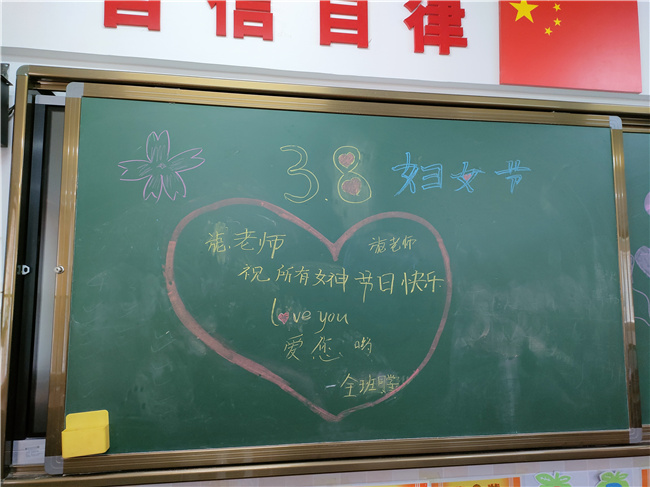 自信自律
3.8 妇女节
施老师 施老师
祝所有女神节日快乐
love you
爱您哟
一全班